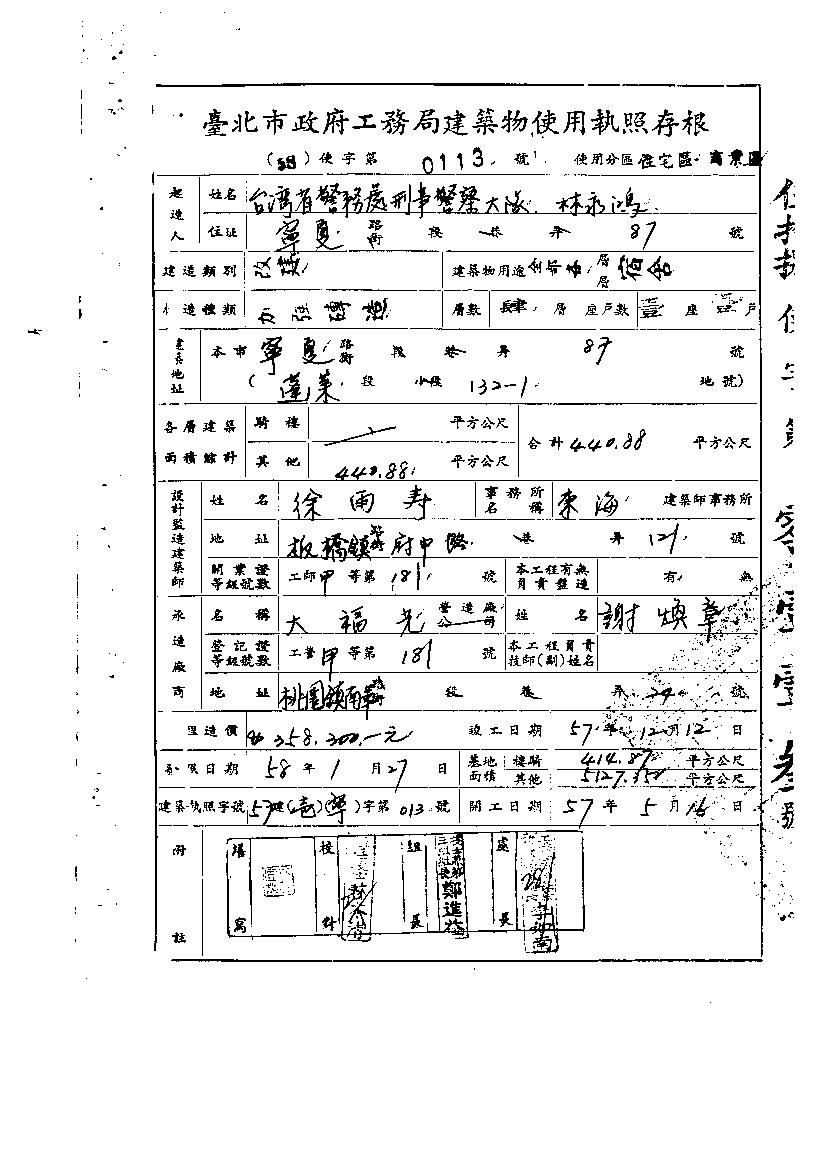 臺北市政府工務局建築物使用執照存根
(58)使字第 0113 號 使用分區 住宅區 商業區
起造人 姓名 台湾省警務處刑事警察大隊 林永鴻
住址 寧夏 路街 段 巷 弄 87 號
建造類別 改建 建築物用途 層層 宿舍
構造種類 加强磚造 層數 肆 層 座戶數 壹 座 戶
建築地址 本市 寧夏 路街 段 巷 弄 87 號
(蓬萊 段 小段 132-1 地號)
各層建築面積總計 騎樓 平方公尺 合計 440.88 平方公尺
其他 440.88 平方公尺
設計監造建築師 姓名 徐雨寿 事務所名稱 東海 建築師事務所
地址 板橋鎮 府中路 巷 弄 121 號
開業證等級號數 工師甲等第 181 號 本工程有無負責監造 有 無
承造廠商 名稱 大福光 營造廠公司 姓名 謝煥章
登記證等級號數 工營甲等第 181 號 本工程負責技師(副)姓名
地址 桃園鎮南華 段 巷 弄 號
造價 358,300.-元 竣工日期 57年12月12日
日期 58年1月27日 基地面積 樓騎 414.87 平方公尺
其他 5127.35 平方公尺
建築執照字號 57建(壱)(寧)字第 013 號 開工日期 57年5月16日
附註 繕寫 校對 組長 鄭進 處長
使字第 零壹壹叁號